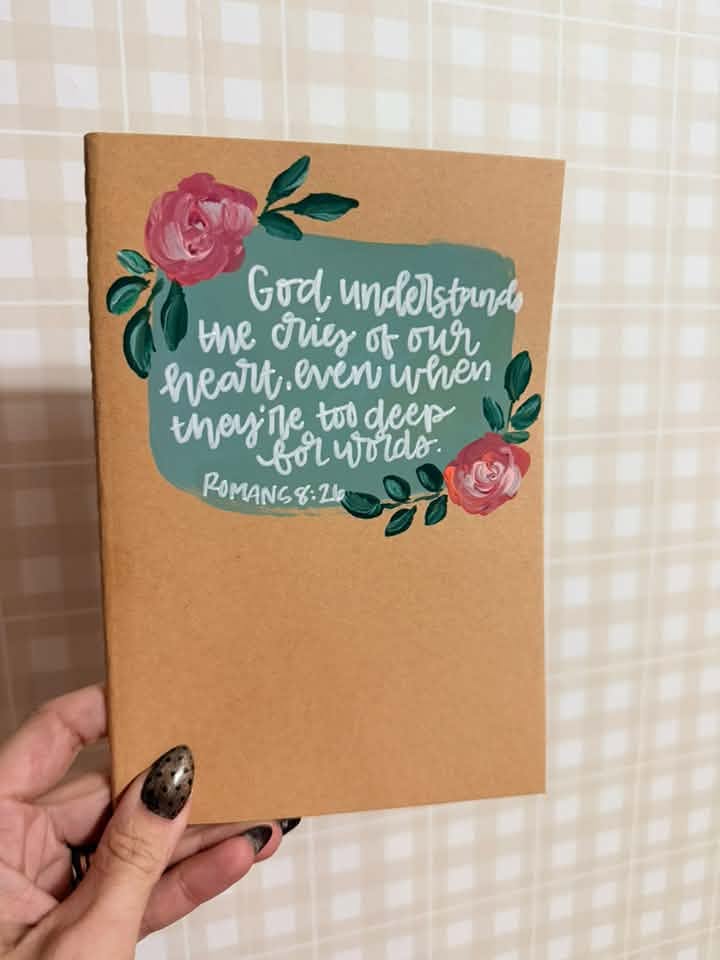 God understands
the cries of our
heart, even when
they're too deep
for words.
ROMANS 8:26